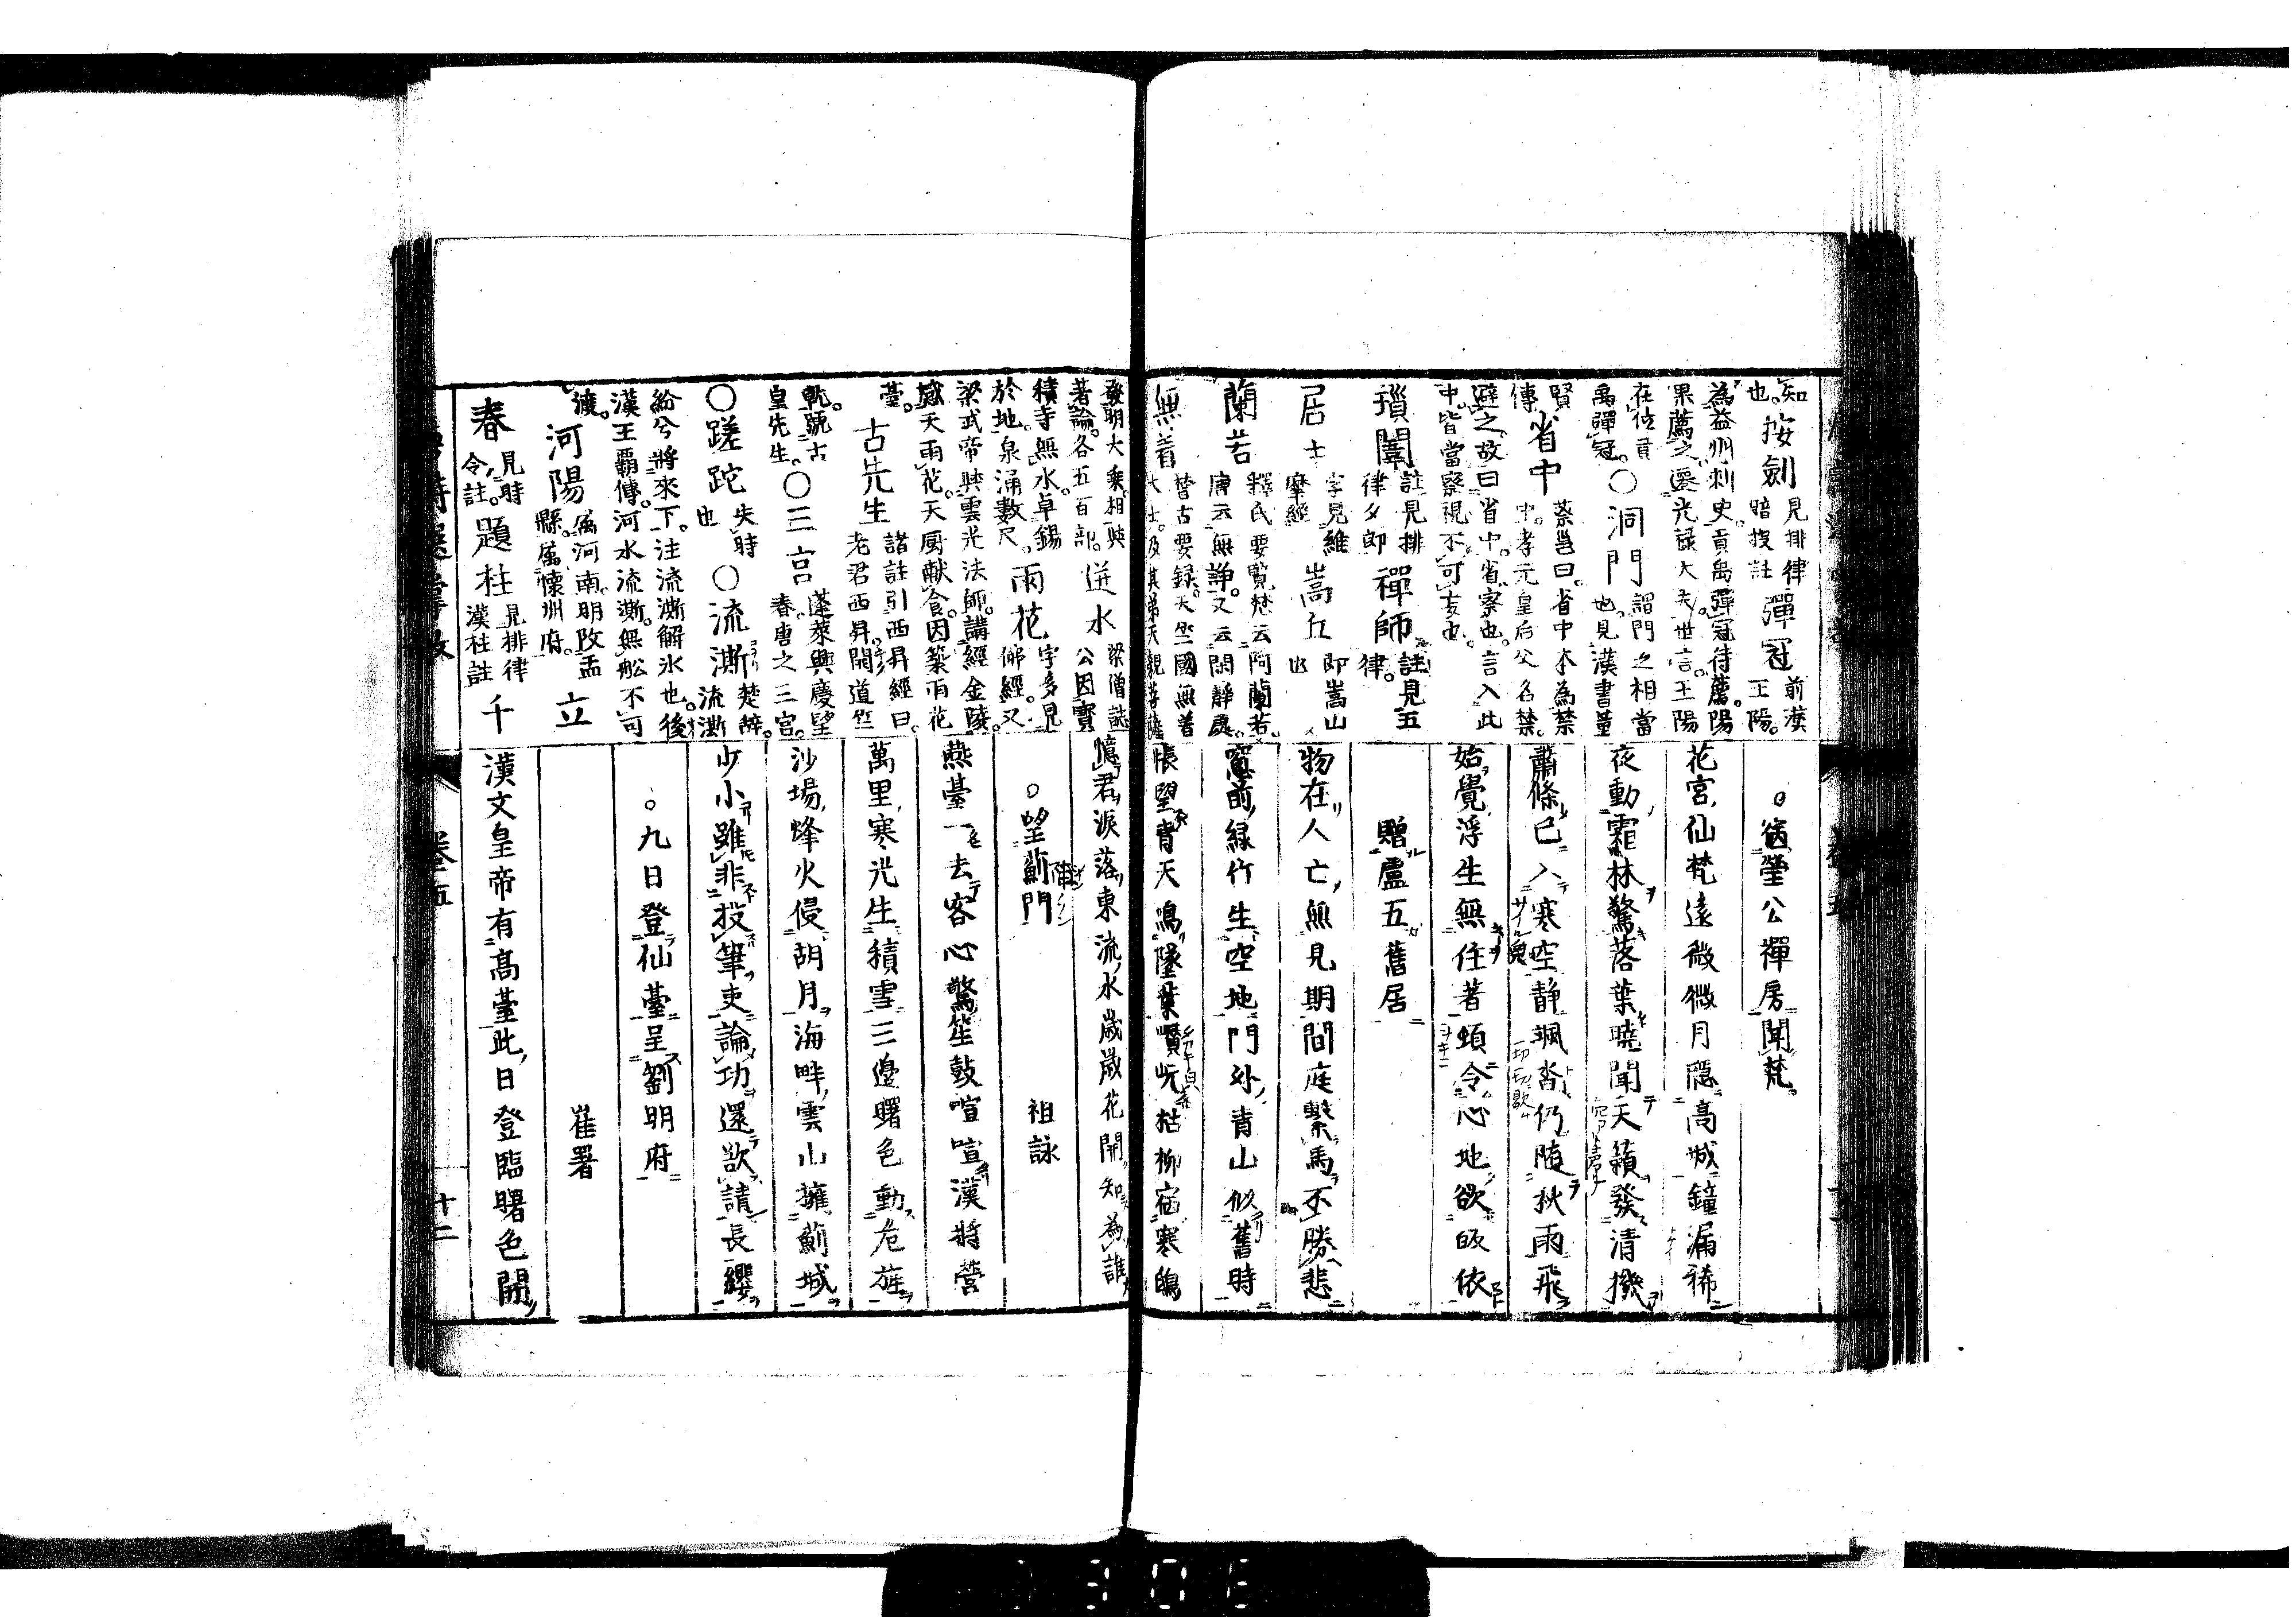 知
也。按劍見排律
暗投註彈冠前漢
王陽。
為益州刺史貢禹彈冠待薦。陽
果薦之。遷光祿大夫世言。王陽
在位貢
禹彈冠。〇洞門謂門之相當
也。見漢書董
賢
傳省中蔡邕曰。省中本為禁
中。孝元皇后父名禁。
避之。故曰省中。省、察也。言入此
中。皆當察視不可妄也。
瑣闈註見排
律夕郎禪師註見五
律。
居士字見維
摩經嵩丘即嵩山
也
蘭若釋氏要覽。梵云阿蘭若。
唐云無諍。又云閑靜處。
無着
〇宿瑩公禪房聞梵。
花宮仙梵遠微微月隱高城鐘漏稀
夜動霜林驚落葉曉聞天籟發清機
蕭條已入寒空靜颯沓仍隨秋雨飛
始覺浮生無住著頓令心地欲皈依
贈盧五舊居
物在人亡無見期間庭繫馬不勝悲
窓前綠竹生空地門外青山似舊時
悵望青天鳴墜葉巑岏枯柳宿寒鴟
發明大乘。相與
著論。各五百部。迸水梁僧誌
公因寶
積寺無水。卓錫
於地。泉涌數尺。雨花字多見
佛經。又
梁武帝與雲光法師。講經金陵。
感天雨花。天厨献食。因築雨花
臺。古先生諸註引西昇經曰。
老君西昇。開道竺
乾。號古
皇先生。〇三宮蓬萊興慶望
春。唐之三宮。
〇蹉跎失時
也〇流澌楚辭。
流澌
紛兮將來下。注流澌解氷也。後
漢王覇傳。河水流澌。無舩不可
渡。河陽属河南。明改孟
縣。属懷州府。立
春見時
令註。題柱見排律
漢柱註千
憶君淚落東流水歲歲花開知為誰
〇望薊門 祖詠
燕臺一去客心驚笙鼓喧喧漢將營
萬里寒光生積雪三邊曙色動危旌
沙場烽火侵胡月海畔雲山擁薊城
少小雖非投筆吏論功還欲請長纓
〇九日登仙臺呈劉明府
崔署
漢文皇帝有高臺此日登臨曙色開
卷五
十二